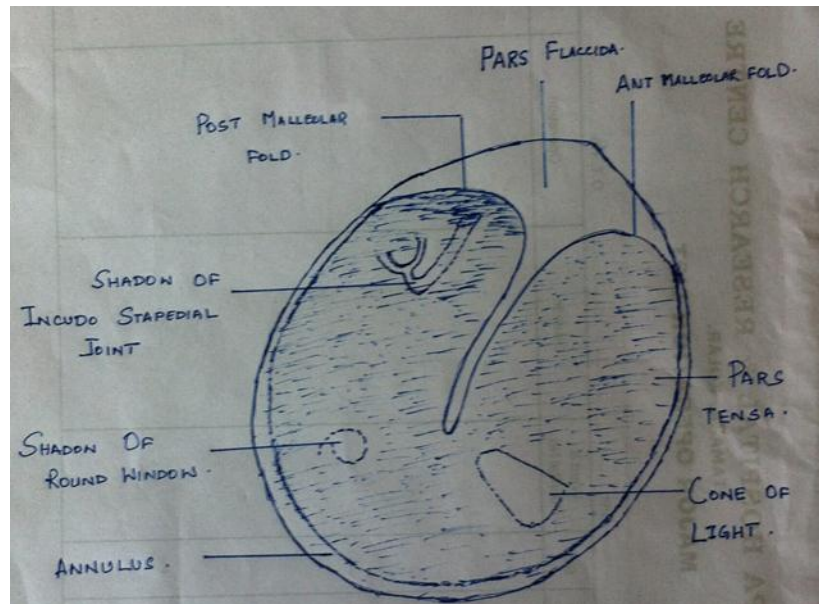 PARS FLACCIDA.
ANT MALLEOLAR FOLD.
POST MALLEOLAR
FOLD.
SHADOW OF
INCUDO STAPEDIAL
JOINT
PARS
TENSA.
SHADOW OF
ROUND WINDOW.
CONE OF
LIGHT.
ANNULUS.
RESEARCH CENTRE